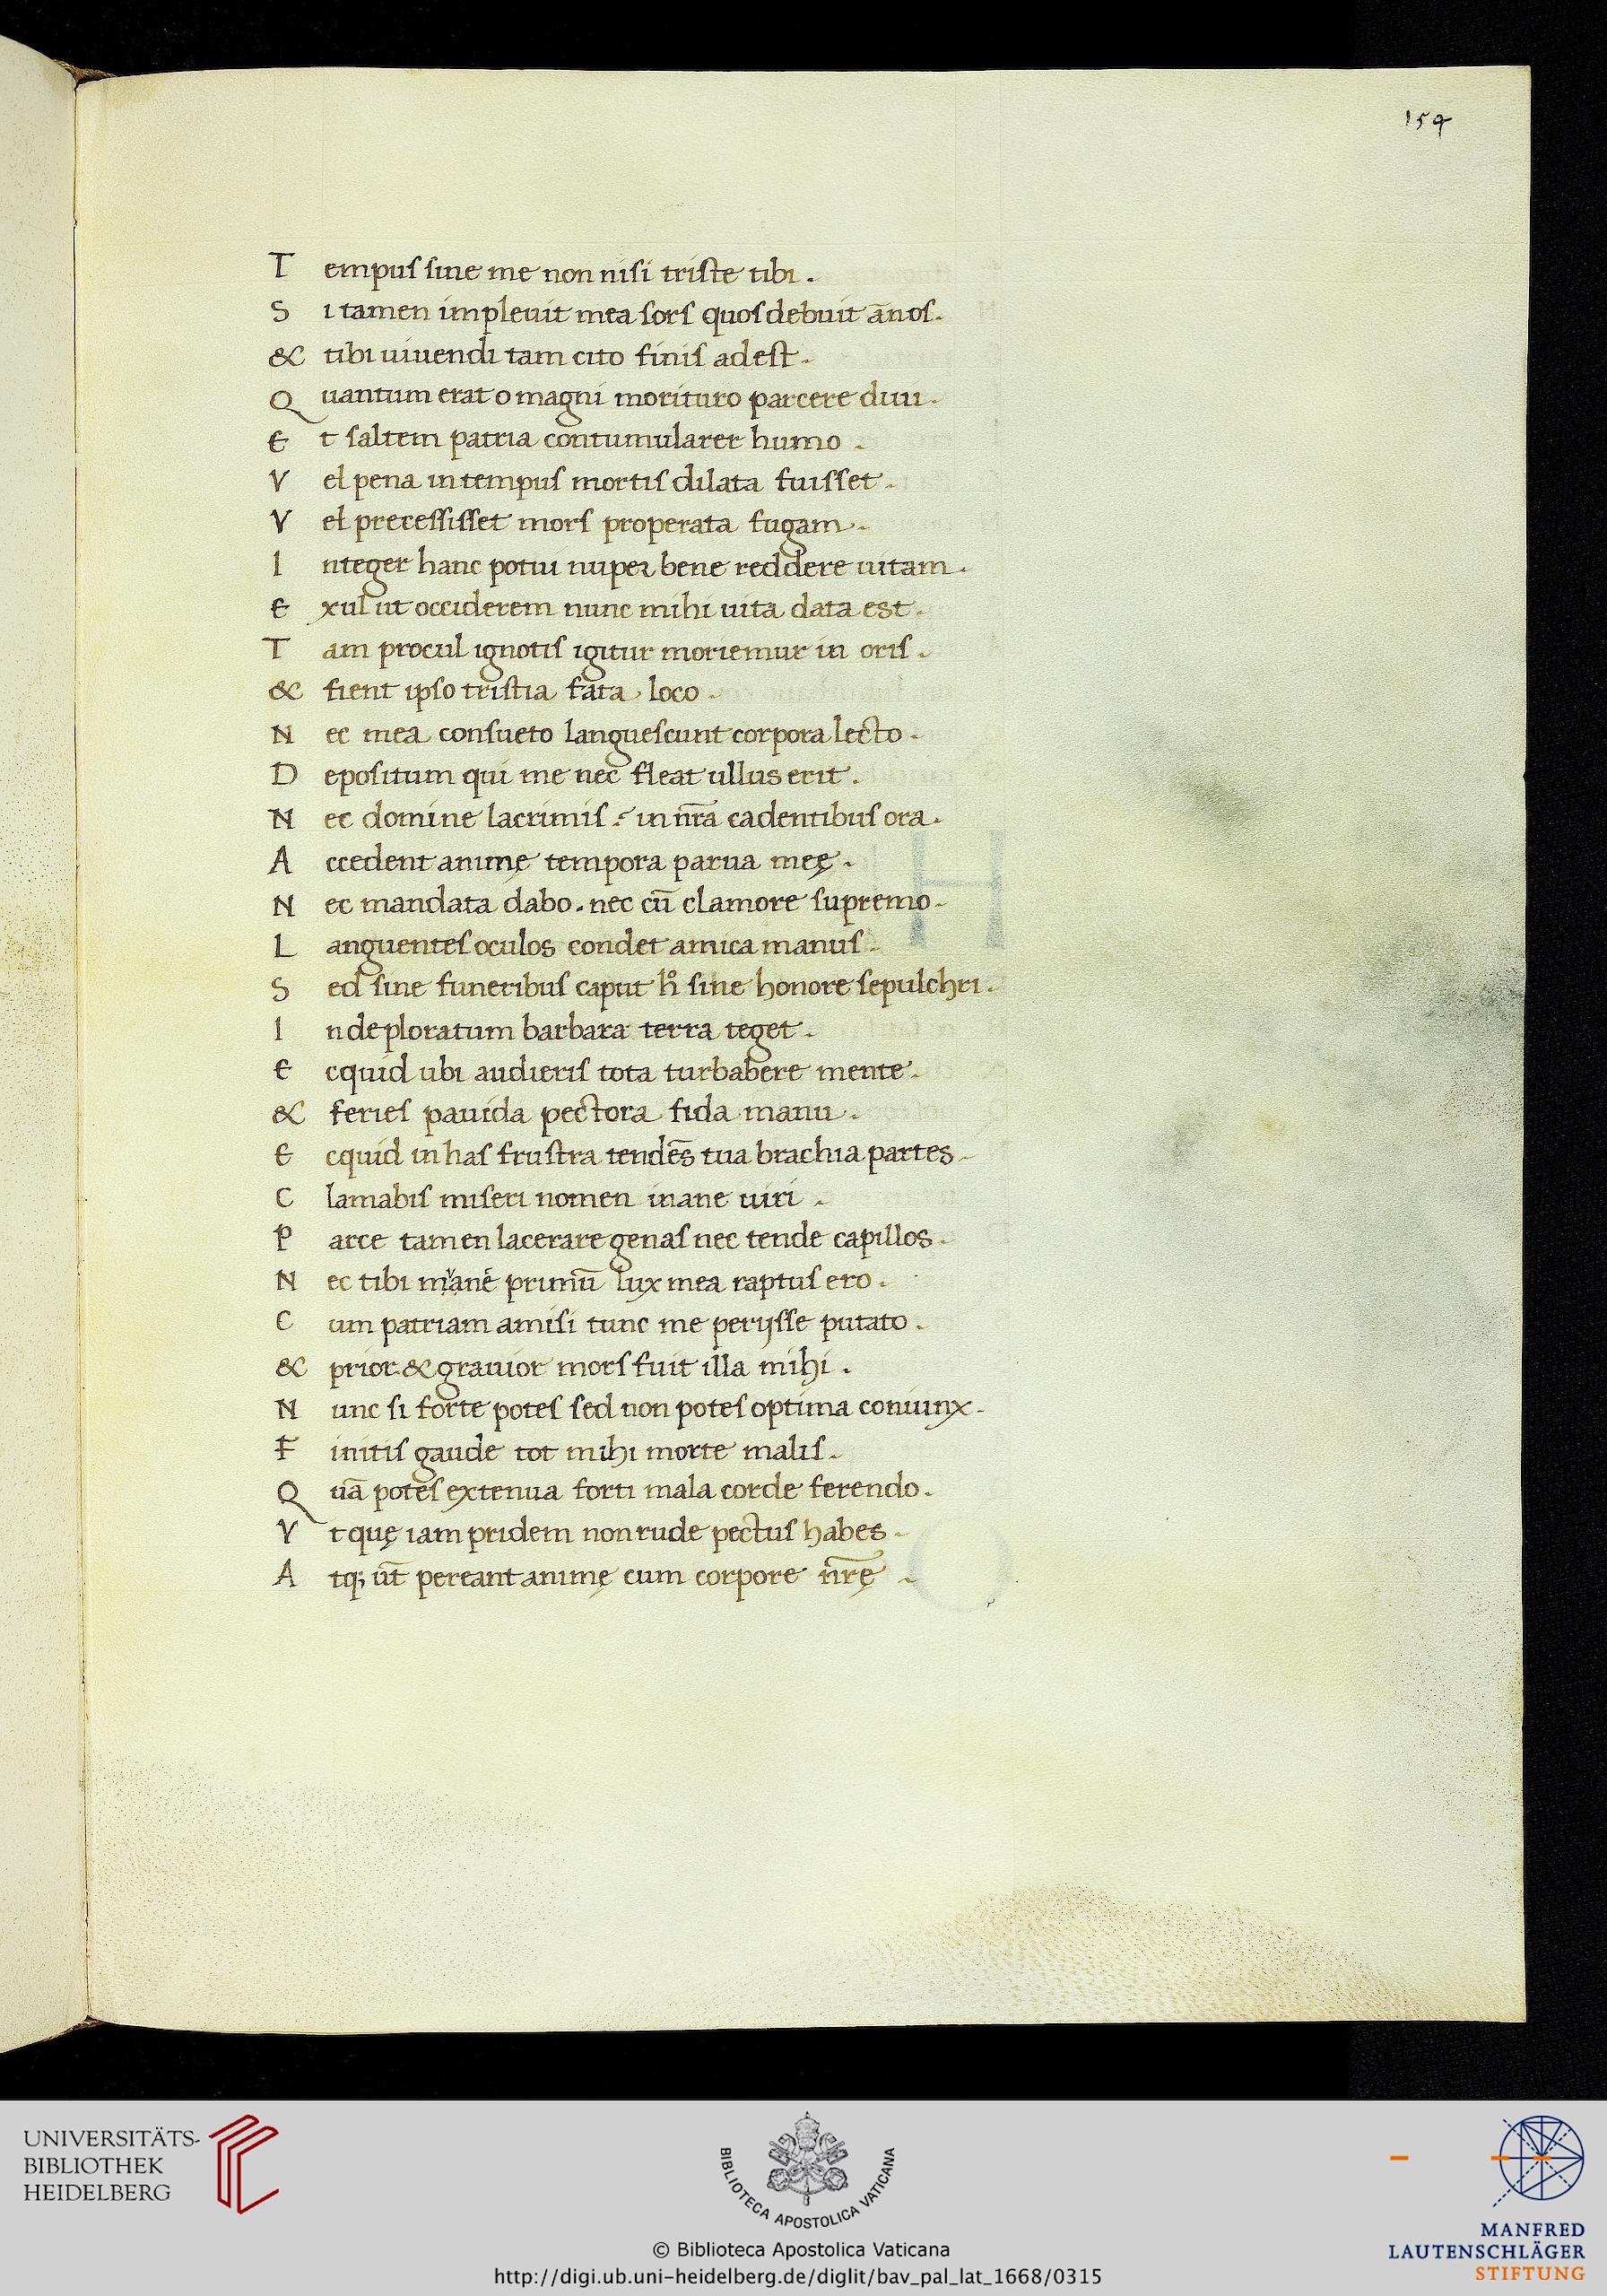 154
T empus sine me non nisi triste tibi .
S i tamen impleuit mea sors quos debuit ãnos .
& tibi uiuendi tam cito finis adest .
Q uantum erat o magni morituro parcere diui .
E t saltem patria contumularer humo .
V el pena in tempus mortis dilata fuisset .
V el precessisset mors properata fugam .
I nteger hanc potui nuper bene reddere uitam .
E xul ut occiderem nunc mihi uita data est .
T am procul ignotis igitur moriemur in oris .
& fient ipso tristia fata loco .
N ec mea consueto languescunt corpora lecto .
D epositum qui me nec fleat ullus erit .
N ec domine lacrimis in nr̃a cadentibus ora .
A ccedent animę tempora parua meę .
N ec mandata dabo . nec cũ clamore supremo .
L anguentes oculos condet amica manus .
S ed sine funeribus caput h° sine honore sepulchri .
I ndeploratum barbara terra teget .
E cquid ubi audieris tota turbabere mente .
& feries pauida pectora fida manu .
E cquid in has frustra tendẽs tua brachia partes .
C lamabis miseri nomen inane uiri .
P arce tamen lacerare genas nec tende capillos .
N ec tibi primũ lux mea raptus ero .
C um patriam amisi tunc me perijsse putato .
& prior & grauior mors fuit illa mihi .
N unc si forte potes sed non potes optima coniunx .
F initis gaude tot mihi morte malis .
Q uã potes extenua forti mala corde ferendo .
V t quę iam pridem non rude pectus habes .
A tq; ut̃ pereant animę cum corpore nr̃ę .
UNIVERSITÄTS-
BIBLIOTHEK
HEIDELBERG
BIBLIOTECA APOSTOLICA VATICANA
© Biblioteca Apostolica Vaticana
http://digi.ub.uni-heidelberg.de/diglit/bav_pal_lat_1668/0315
MANFRED
LAUTENSCHLÄGER
STIFTUNG